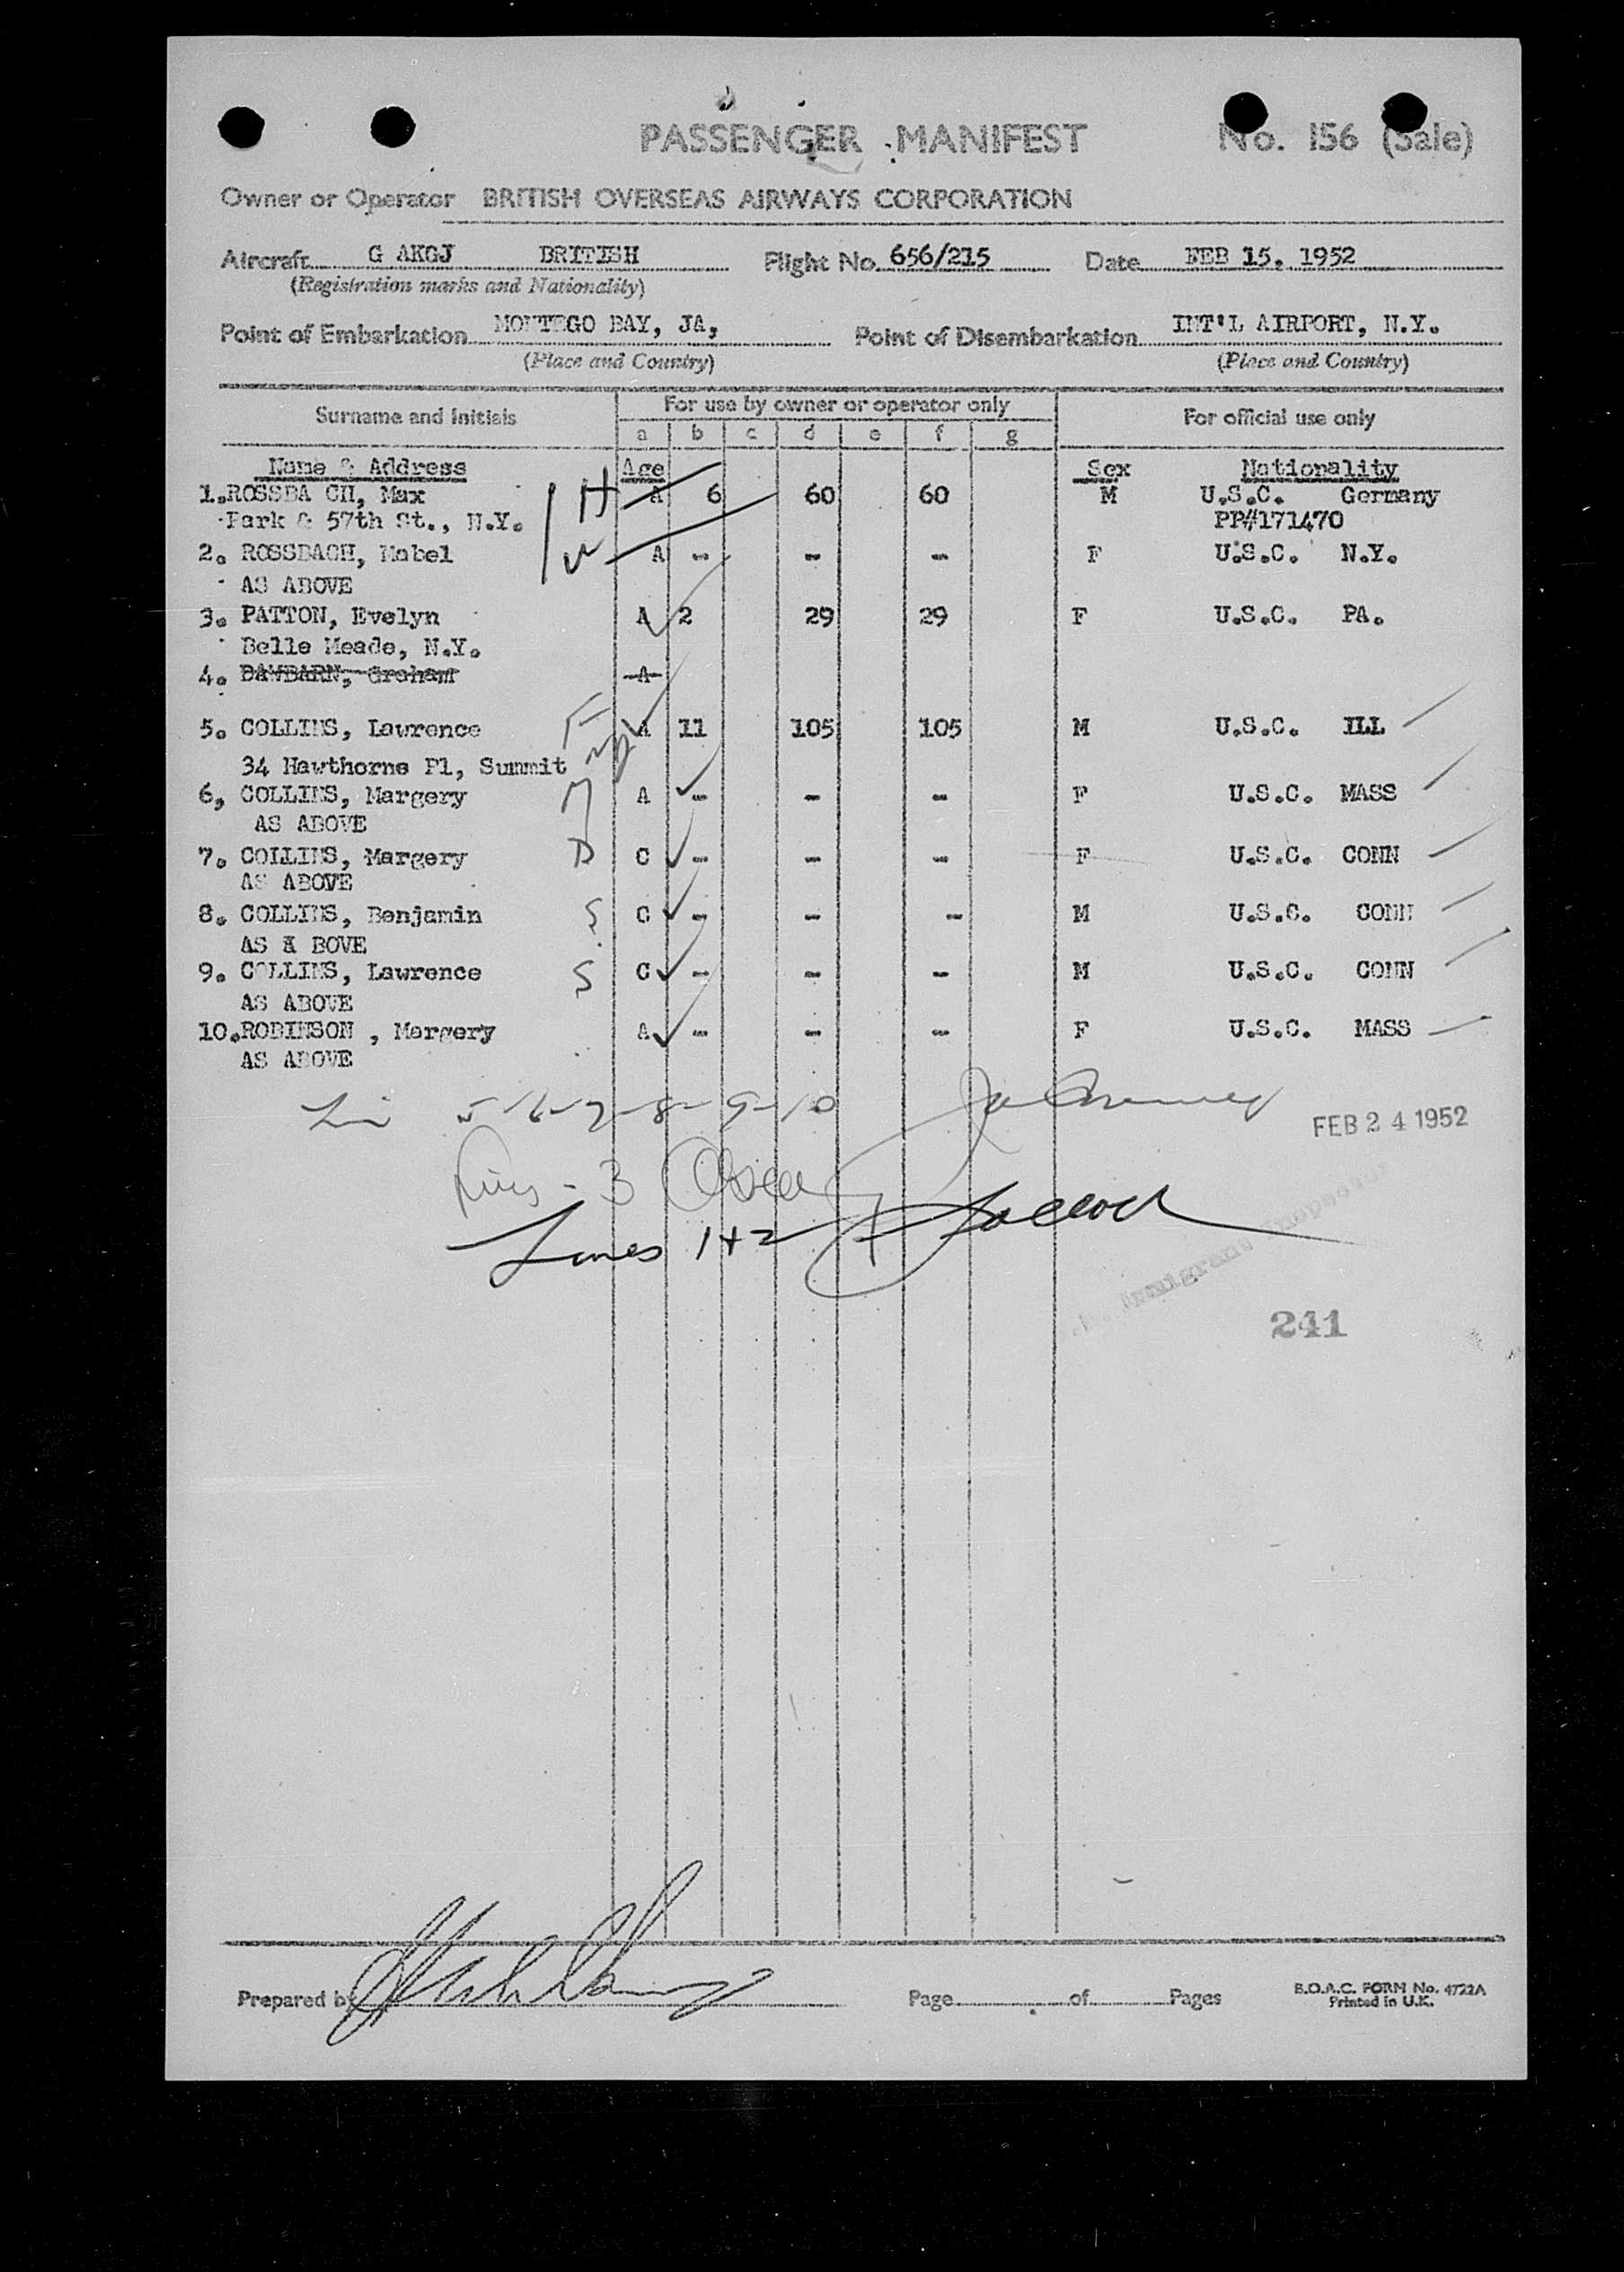 PASSENGER MANIFEST No. 156 (Sale)
Owner or Operator BRITISH OVERSEAS AIRWAYS CORPORATION
Aircraft G AKGJ BRITISH Flight No. 656/215 Date FEB 15, 1952
(Registration marks and Nationality)
Point of Embarkation MONTEGO BAY, JA, Point of Disembarkation INT'L AIRPORT, N.Y.
(Place and Country) (Place and Country)
Surname and Initials For use by owner or operator only For official use only
a b c d e f g
Name & Address Age Sex Nationality
1. ROSSBA CH, Max H A 6 60 60 M U.S.C. Germany
Park & 57th St., N.Y. PP#171470
2. ROSSBACH, Mabel W A - - - F U.S.C. N.Y.
AS ABOVE
3. PATTON, Evelyn A 2 29 29 F U.S.C. PA.
Belle Meade, N.Y.
4. DAWBARN, Graham A
5. COLLINS, Lawrence F A 11 105 105 M U.S.C. ILL
34 Hawthorne Pl, Summit NJ
6, COLLINS, Margery M A - - - F U.S.C. MASS
AS ABOVE
7. COLLINS, Margery D C - - - F U.S.C. CONN
AS ABOVE
8. COLLINS, Benjamin S C - - - M U.S.C. CONN
AS A BOVE
9. COLLINS, Lawrence S C - - - M U.S.C. CONN
AS ABOVE
10. ROBINSON , Margery A - - - F U.S.C. MASS
AS ABOVE
5-6-7-8-9-10
FEB 24 1952
Lines - 3
Lines 1+2
Immigrant Inspector
241
Prepared by Page of Pages B.O.A.C. FORM No. 4722A
Printed in U.K.